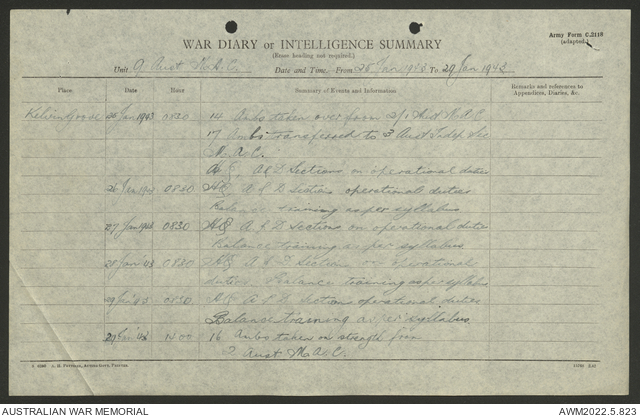 Army Form C.2118
(adapted.)
WAR DIARY or INTELLIGENCE SUMMARY
(Erase heading not required.)
Unit 9 Aust M.A.C. Date and Time—From 25 Jan 1943 To 29 Jan 1943
Place Date Hour Summary of Events and Information Remarks and references to Appendices, Diaries, &c.
Kelvingrove Jan 1943 0830 14 Ambs taken over from 2/1 Aust M.A.C
17 Ambs transferred to 3 Aust Indep Sec
M.A.C.
A & D Sections on operational duties
26 Jan 0830 HQ A & D Sections operational duties
Balance training as per syllabus
27 Jan 1943 0830 HQ A & D Sections on operational duties
Balance training as per syllabus
28 Jan 43 0830 HQ A & D Section on operational
duties. Balance training as per syllabus
29 Jan 43 0830 HQ A & D Sections operational duties
Balance training as per syllabus
29 Jan 43 1400 16 Ambs taken on strength from
2 Aust M.A.C.
AUSTRALIAN WAR MEMORIAL AWM2022.5.823